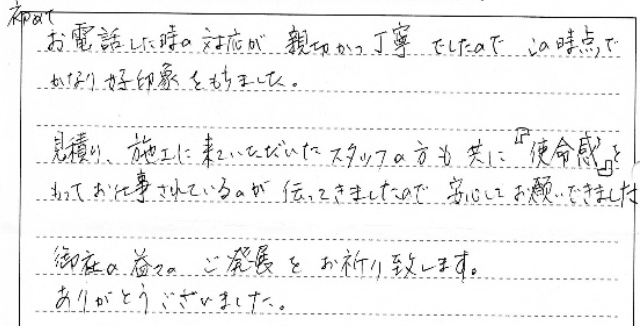 初めて
お電話した時の対応が 親切かつ丁寧でしたので この時点で
かなり好印象をもちました。
見積り、施工に来ていただいたスタッフの方も共に『使命感』を
もってお仕事されているのが伝ってきましたので安心してお願いできました
御社の益々のご発展をお祈り致します。
ありがとうございました。